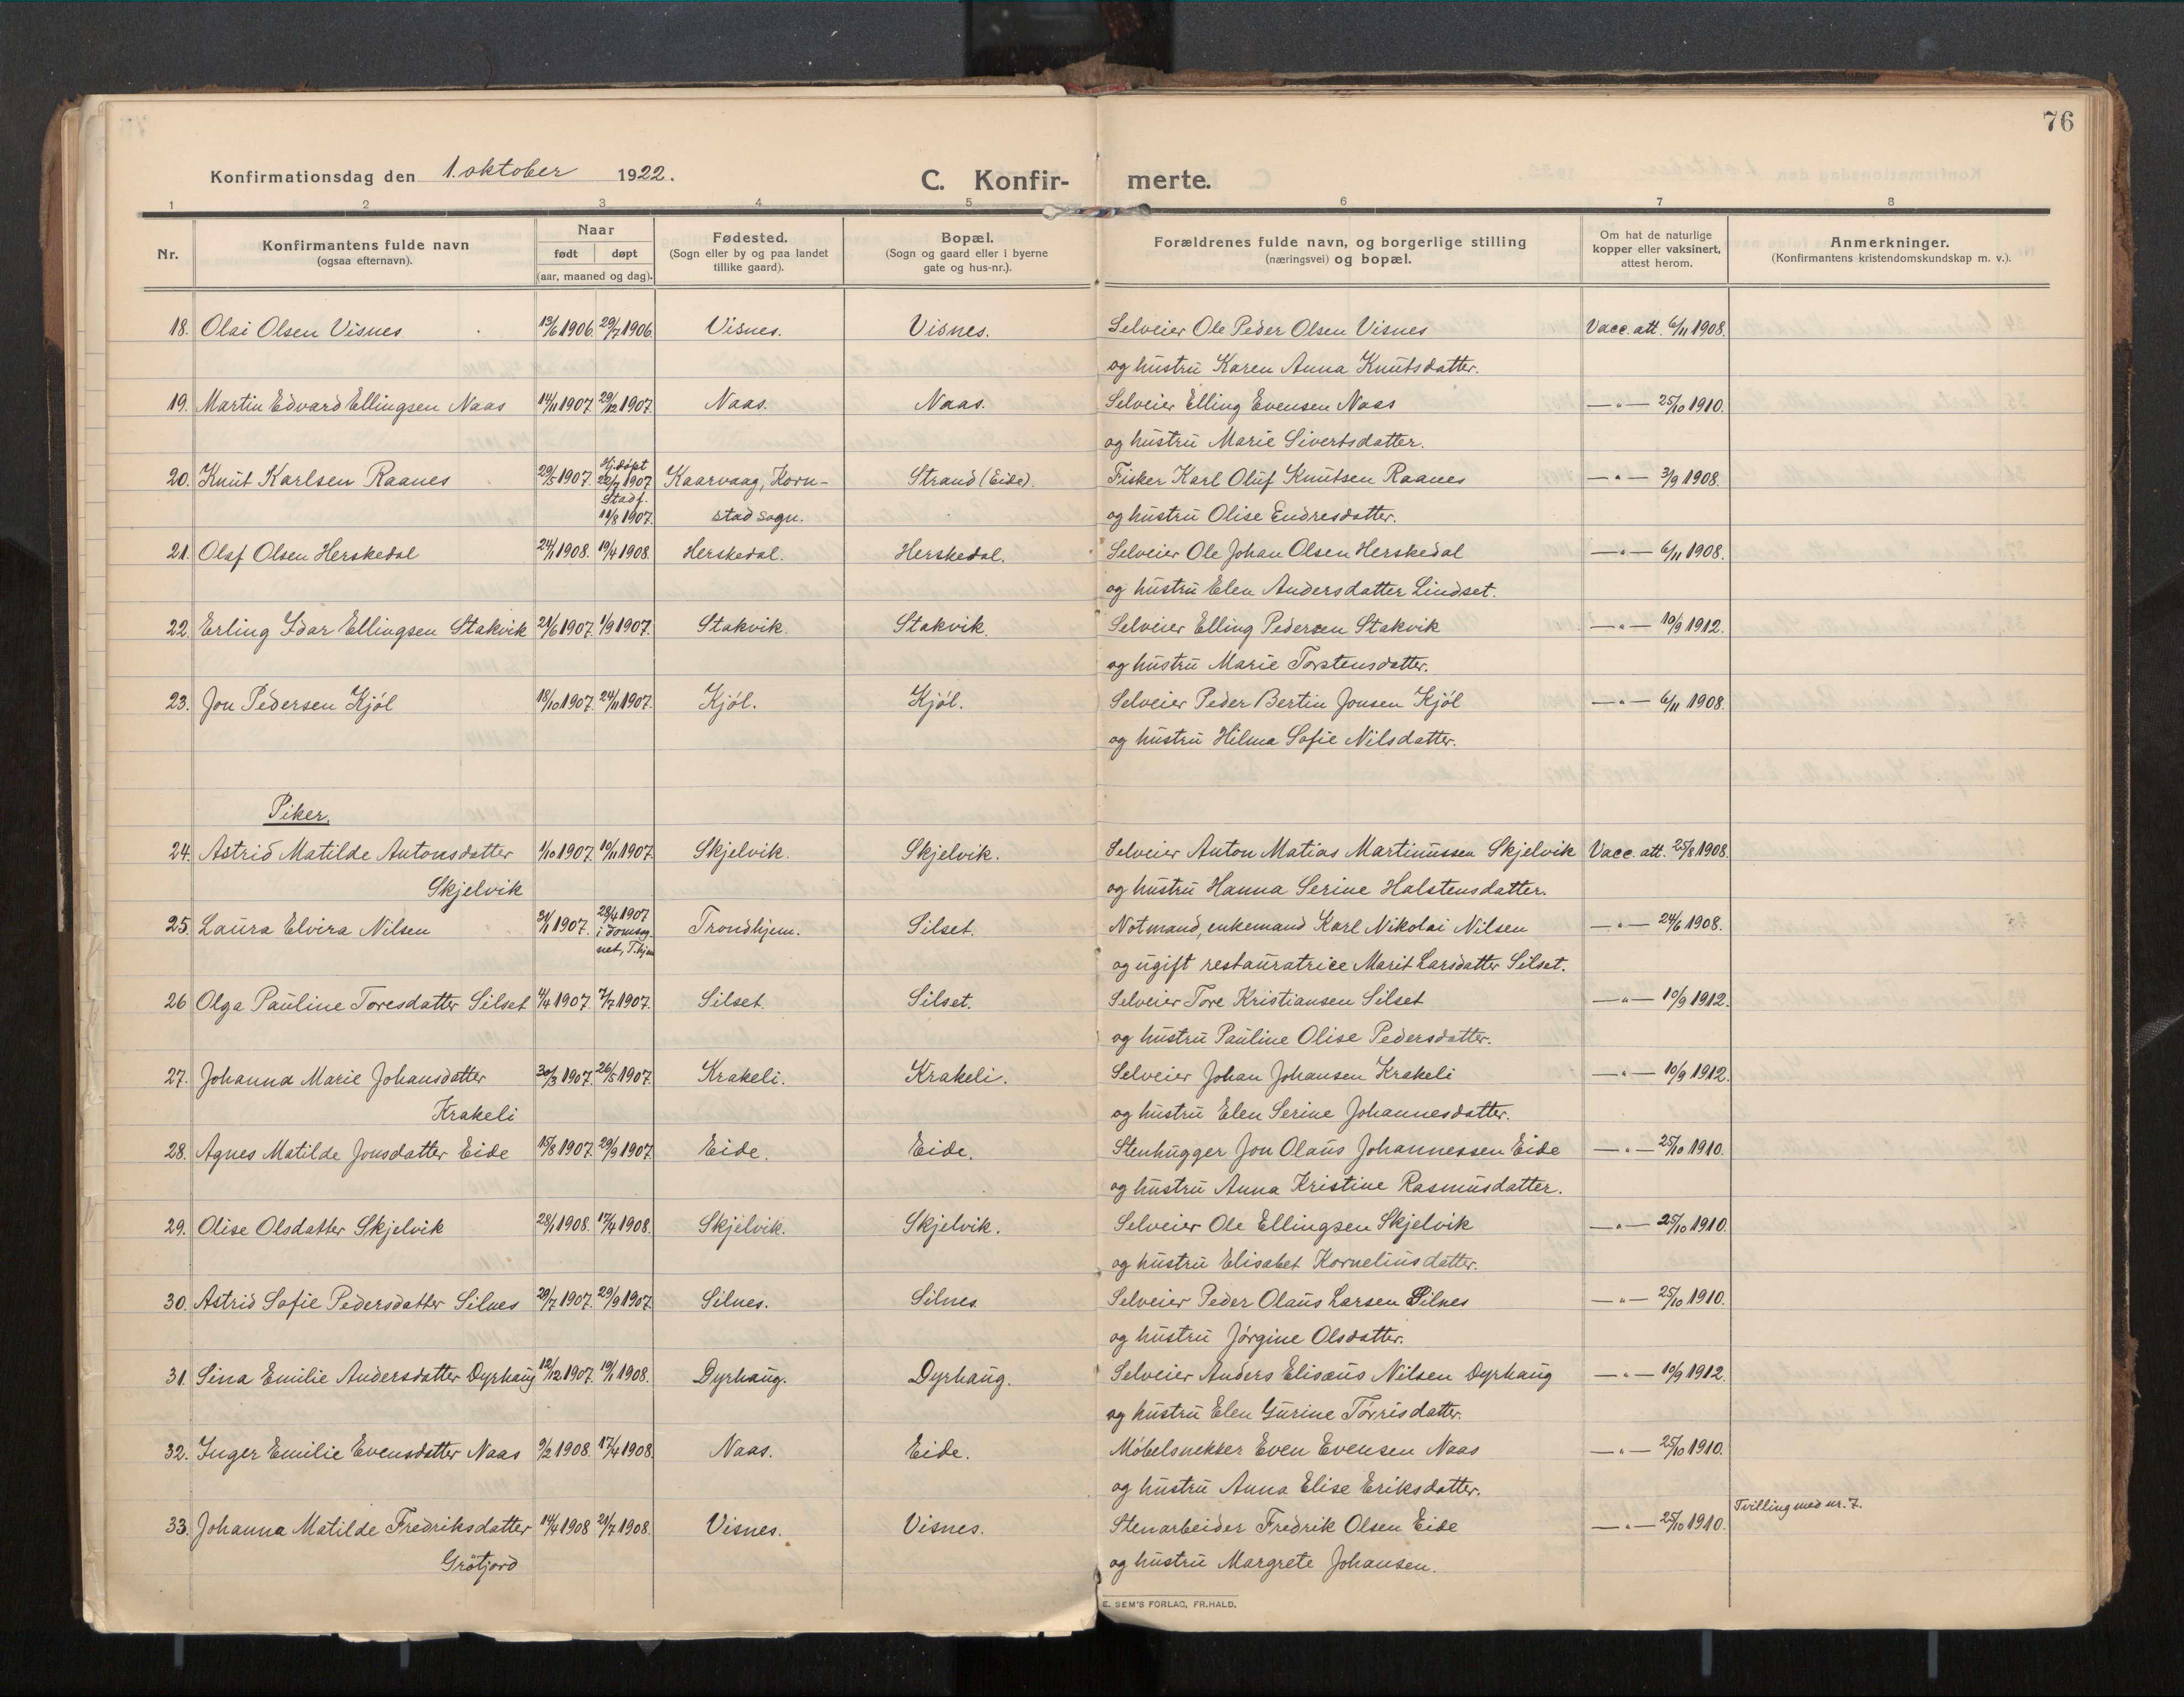 76
Konfirmationsdag den 1. oktober 1922.
C. Konfir- merte.
1 2 3 4 5 6 7 8
Nr.
Konfirmantens fulde navn
(ogsaa efternavn).
Naar
født døpt
(aar, maaned og dag).
Fødested.
(Sogn eller by og paa landet
tillike gaard).
Bopæl.
(Sogn og gaard eller i byerne
gate og hus-nr.).
Forældrenes fulde navn, og borgerlige stilling
(næringsvei) og bopæl.
Om hat de naturlige
kopper eller vaksinert,
attest herom.
Anmerkninger.
(Konfirmantens kristendomskundskap m. v.).
18. Olai Olsen Visnes 13/6 1906. 29/7 1906. Visnes. Visnes. Selveier Ole Peder Olsen Visnes Vacc. att. 6/11 1908.
og hustru Karen Anna Knutsdatter.
19. Martin Edvard Ellingsen Naas 14/11 1907. 29/12 1907. Naas. Naas. Selveier Elling Evensen Naas —"— 25/10 1910.
og hustru Marie Sivertsdatter.
20. Knut Karlsen Raanes 29/5 1907. Hj.døpt 20/7 1907 Kaarvaag, Korn- Strand (Eide). Fisker Karl Oluf Knutsen Raanes —"— 3/9 1908.
Stadf.
11/8 1907. stad sogn. og hustru Olise Endresdatter.
21. Olaf Olsen Herskedal 24/1 1908. 19/4 1908. Herskedal. Herskedal. Selveier Ole Johan Olsen Herskedal —"— 6/11 1908.
og hustru Elen Andersdatter Lindset.
22. Erling Idar Ellingsen Stakvik 21/6 1907. 1/9 1907. Stakvik. Stakvik. Selveier Elling Pedersen Stakvik —"— 10/9 1912.
og hustru Marie Torstensdatter.
23. Jon Pedersen Kjøl 18/10 1907. 24/11 1907. Kjøl. Kjøl. Selveier Peder Bertin Jonsen Kjøl —"— 6/11 1908.
og hustru Hilma Sofie Nilsdatter.
Piker.
24. Astrid Matilde Antonsdatter 1/10 1907. 10/11 1907. Skjelvik. Skjelvik. Selveier Anton Matias Martinussen Skjelvik Vacc. att. 25/8 1908.
Skjelvik og hustru Hanna Serine Halstensdatter.
25. Laura Elvira Nilsen 31/1 1907. 28/4 1907 Trondhjem. Silset. Notmand, enkemand Karl Nikolai Nilsen —"— 24/6 1908.
i domsog
net, T.hjem
og ugift restauratrice Marit Larsdatter Silset.
26 Olga Pauline Toresdatter Silset 4/4 1907. 7/7 1907. Silset. Silset. Selveier Tore Kristiansen Silset —"— 10/9 1912.
og hustru Pauline Olise Pedersdatter.
27. Johanna Marie Johansdatter 30/3 1907. 26/5 1907. Krakeli. Krakeli. Selveier Johan Johansen Krakeli —"— 10/9 1912.
Krakeli og hustru Elen Serine Johannesdatter.
28. Agnes Matilde Jonsdatter Eide 15/8 1907. 29/9 1907. Eide. Eide. Stenhugger Jon Olaus Johannessen Eide —"— 25/10 1910.
og hustru Anna Kristine Rasmusdatter.
29. Olise Olsdatter Skjelvik 28/1 1908. 17/4 1908. Skjelvik. Skjelvik. Selveier Ole Ellingsen Skjelvik —"— 25/10 1910.
og hustru Elisabet Korneliusdatter.
30. Astrid Sofie Pedersdatter Silnes 29/7 1907. 29/9 1907. Silnes. Silnes. Selveier Peder Olaus Larsen Silnes —"— 25/10 1910.
og hustru Jørgine Olsdatter.
31. Sina Emilie Andersdatter Dyrhaug 12/12 1907. 19/1 1908. Dyrhaug. Dyrhaug. Selveier Anders Elisæus Nilsen Dyrhaug —"— 10/9 1912.
og hustru Elen Gurine Tørrisdatter.
32. Inger Emilie Evensdatter Naas 9/2 1908. 17/4 1908. Naas. Eide. Møbelsnekker Even Evensen Naas —"— 25/10 1910.
og hustru Anna Elise Eriksdatter.
33. Johanna Matilde Fredriksdatter 14/4 1908 21/7 1908. Visnes. Visnes. Stenarbeider Fredrik Olsen Eide —"— 25/10 1910. Tvilling med nr. 7.
Grøtjord og hustru Margrete Johansen.
E. SEM'S FORLAG, FR.HALD.